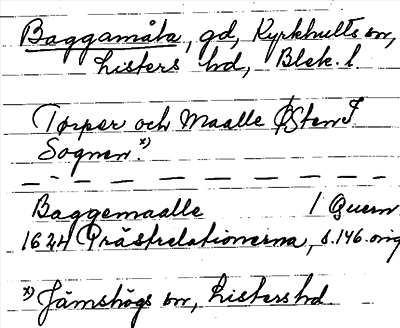 Baggamåla, gd, Kyrkhults sn,
Listers hd, Blek. l
Torper och Maalle Østen I
Sognen.x)
Baggemaalle 1 Quern
1624 Prästrelationerna, s. 146. orig
x) Jämshögs sn, Listers hd